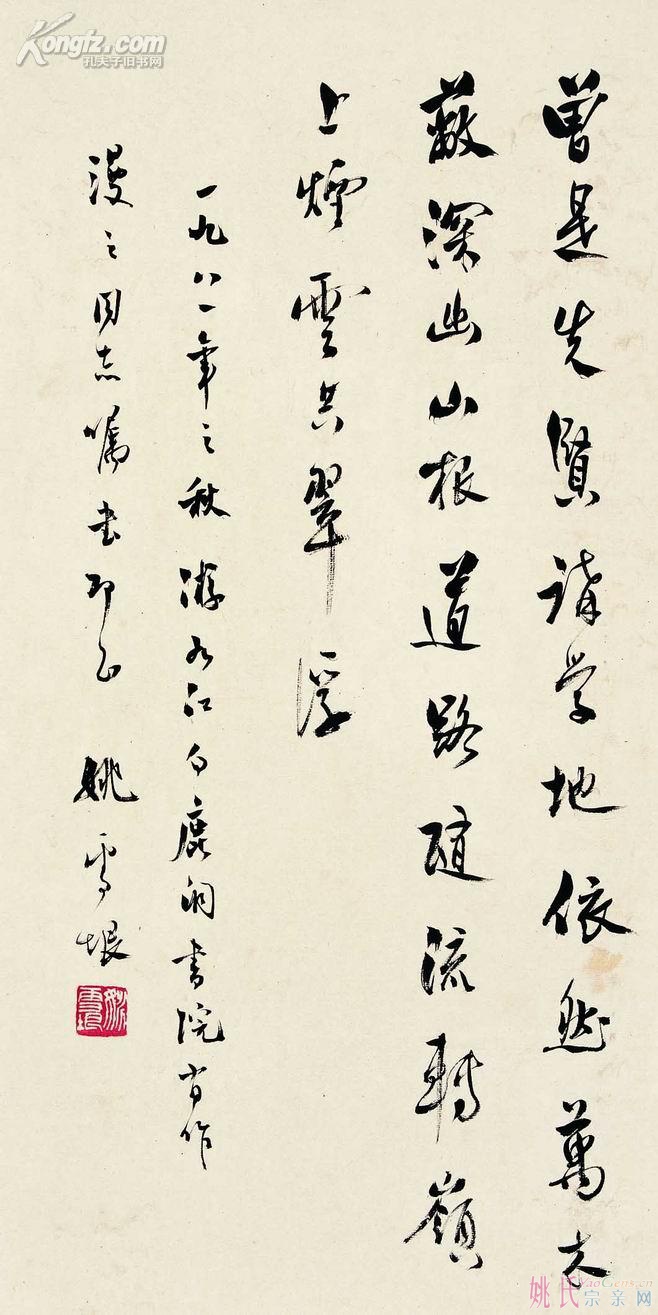 Kongfz.com
孔夫子旧书网
曾是先賢講学地依然萬木
蔽深幽山根道路随流轉嶺
上煙雲共翠浮
一九八一年之秋游九江白鹿洞书院旧作
漫之同志嘱书即正 姚雪垠
姚雪垠
YaoGens.cn
姚氏宗亲网